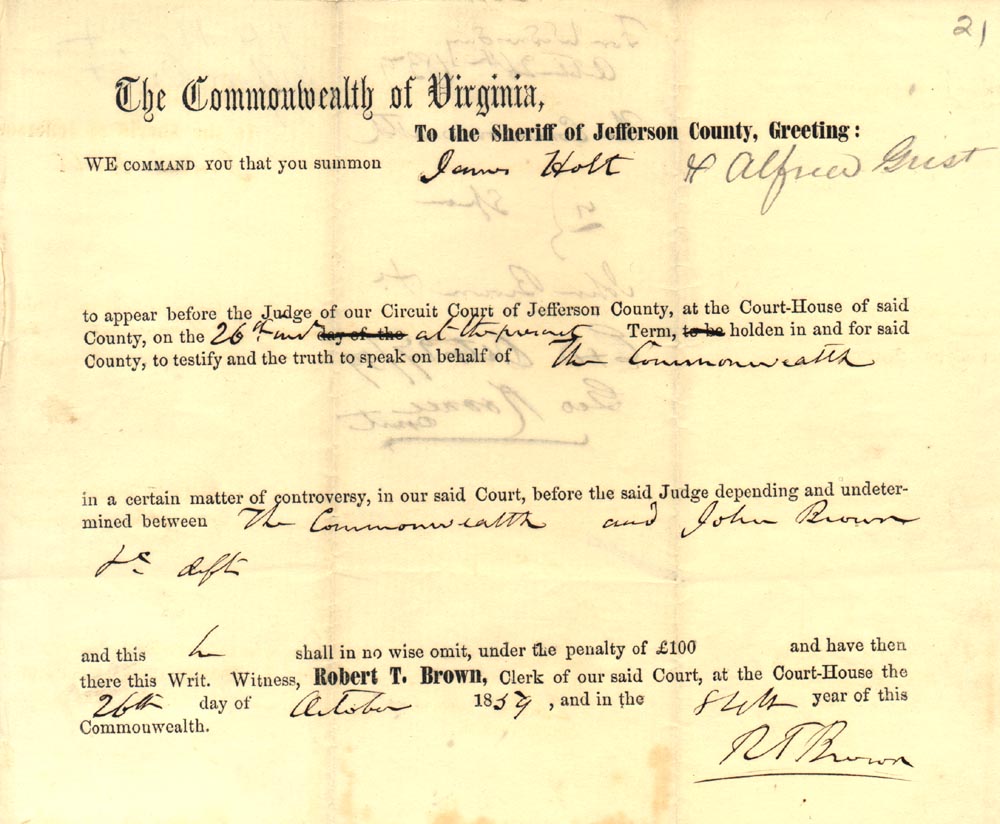 21
The Commonwealth of Virginia,
To the Sheriff of Jefferson County, Greeting:
WE COMMAND YOU that you summon James Holt & Alfred Grist
to appear before the Judge of our Circuit Court of Jefferson County, at the Court-House of said
County, on the 26th inst day of the at the present Term, to be holden in and for said
County, to testify and the truth to speak on behalf of The Commonwealth
in a certain matter of controversy, in our said Court, before the said Judge depending and undeter-
mined between The Commonwealth and John Brown
&c defts
and this he shall in no wise omit, under the penalty of £100 and have then
there this Writ. Witness, Robert T. Brown, Clerk of our said Court, at the Court-House the
26th day of October 1859, and in the 84th year of this
Commonwealth.
R T Brown